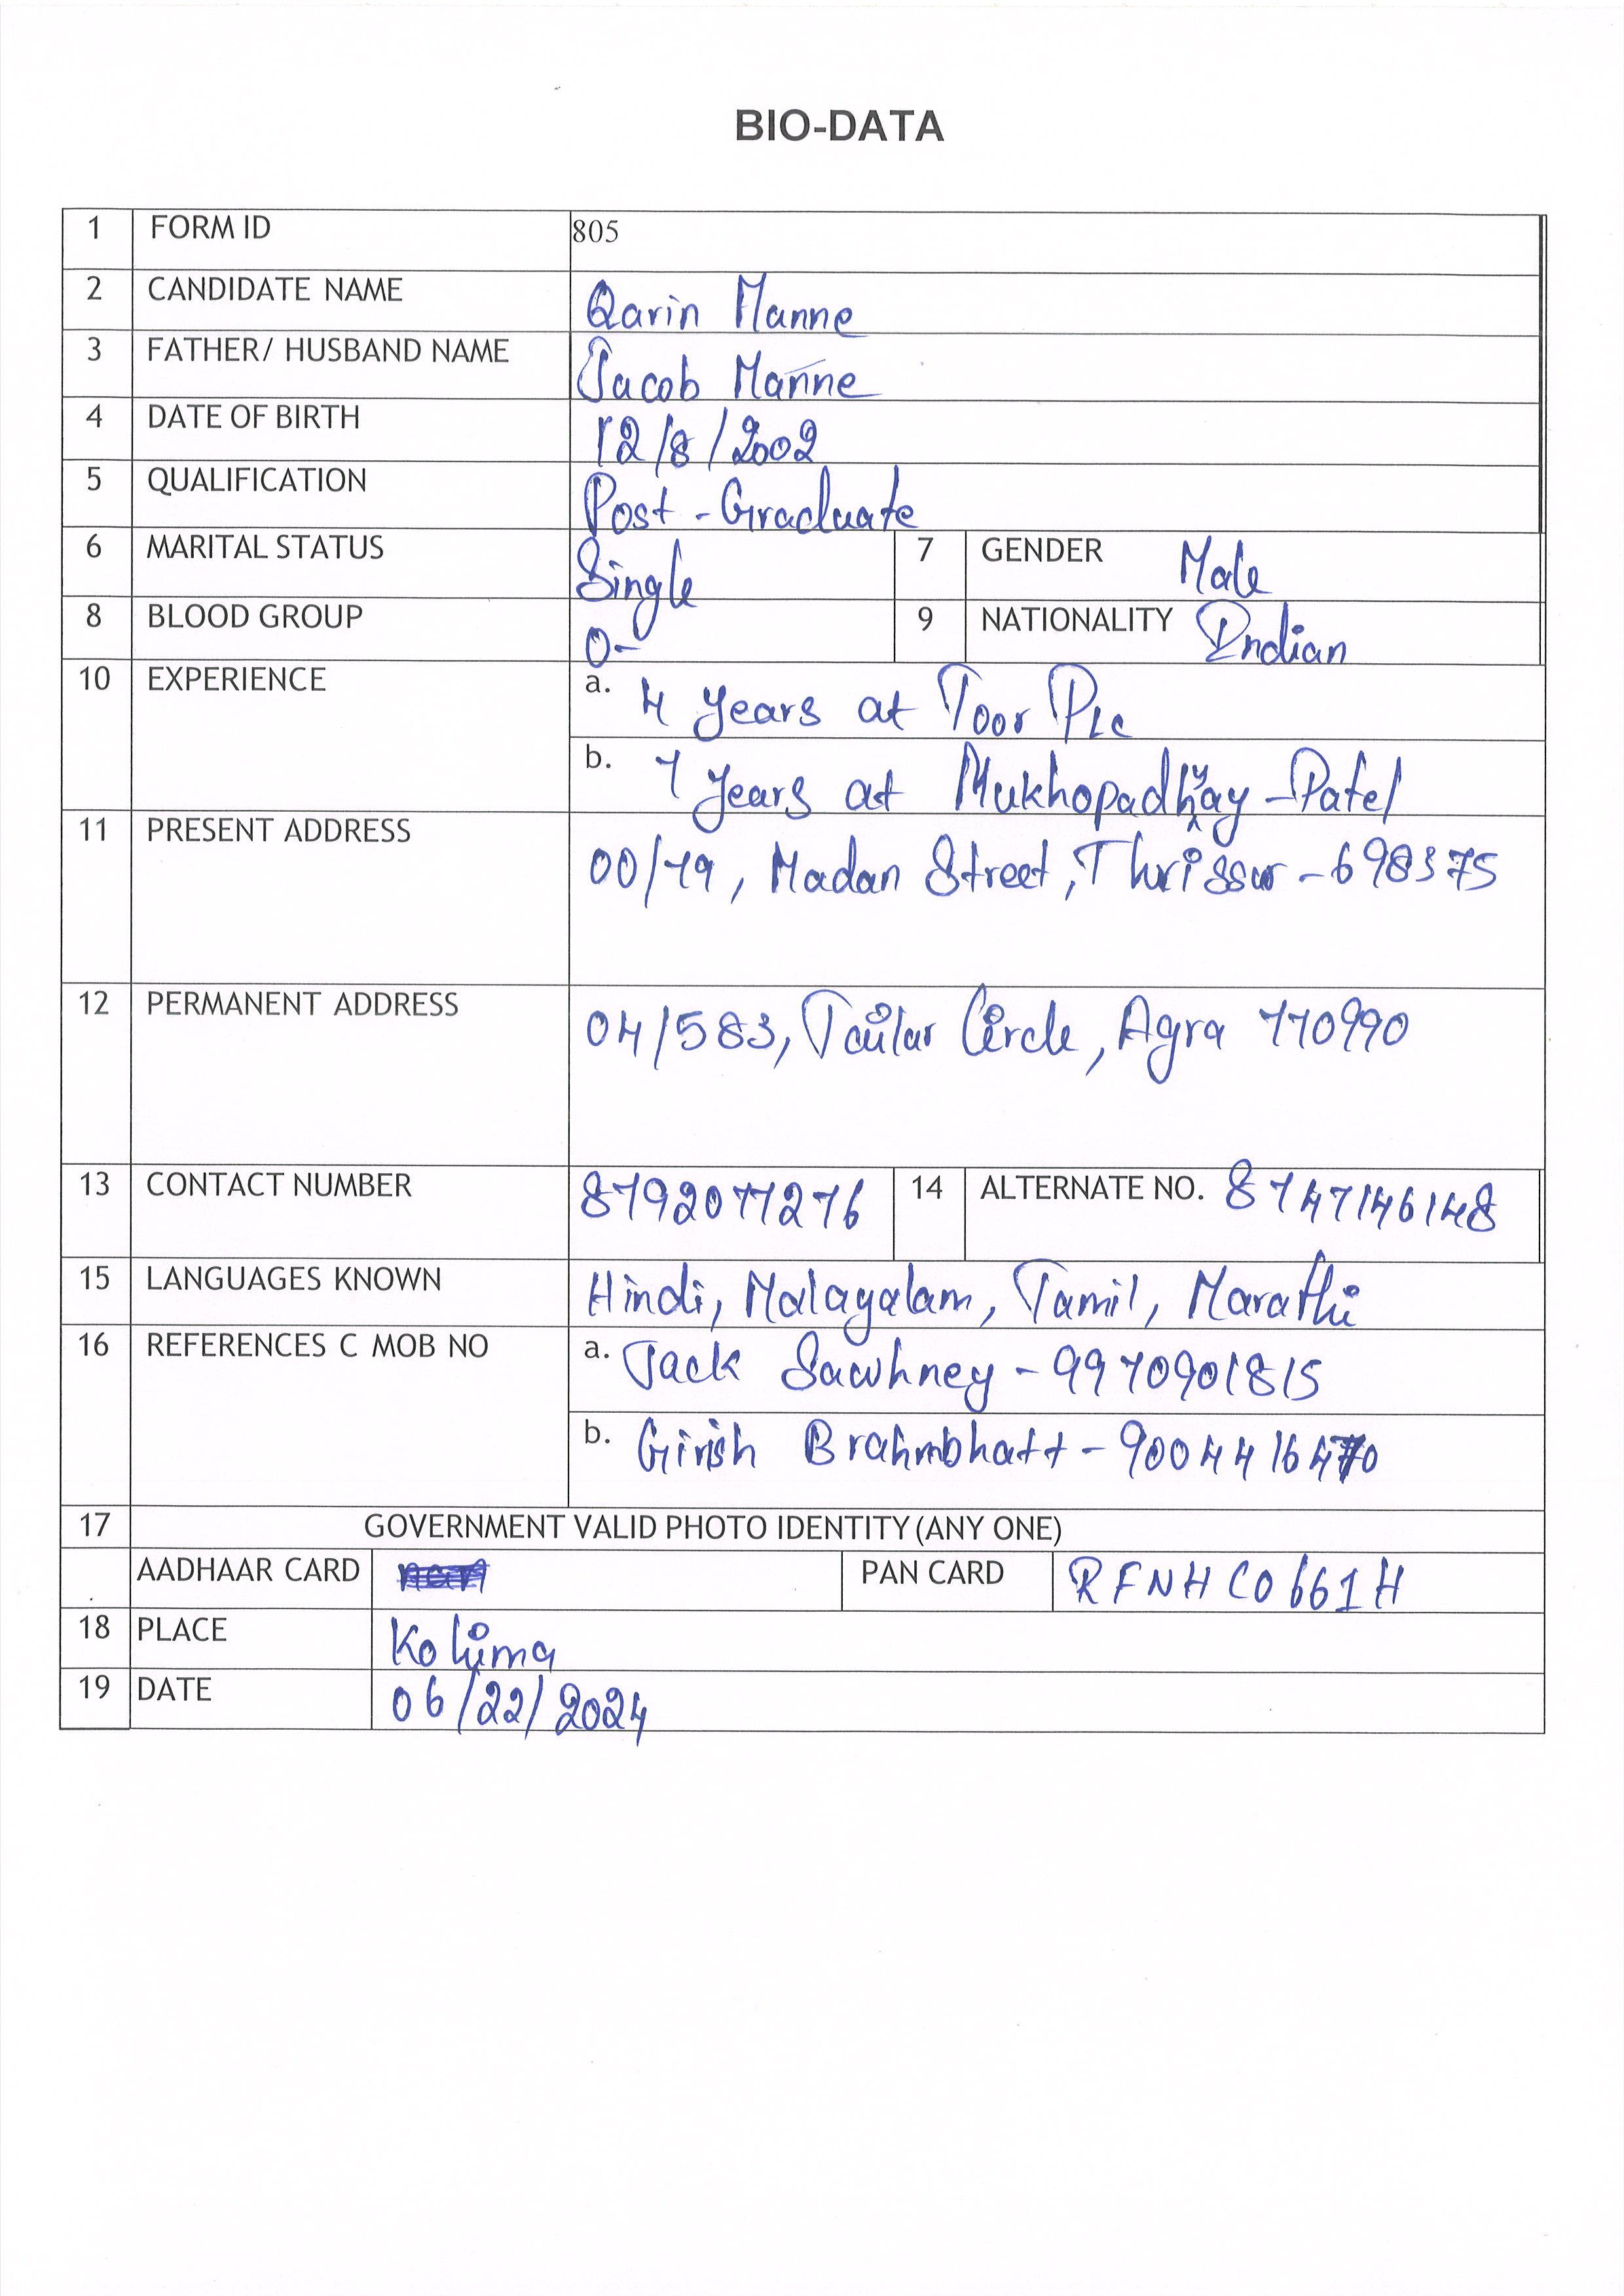 BIO-DATA
1 FORM ID 805
2 CANDIDATE NAME Qarin Manne
3 FATHER/ HUSBAND NAME Jacob Manne
4 DATE OF BIRTH 12/8/2002
5 QUALIFICATION Post-Graduate
6 MARITAL STATUS Single 7 GENDER Male
8 BLOOD GROUP O- 9 NATIONALITY Indian
10 EXPERIENCE a. 4 years at Toor PLC
b. 7 years at Mukhopadhyay-Patel
11 PRESENT ADDRESS 00/79, Madan Street, Thrissur-698375
12 PERMANENT ADDRESS 04/583, Circle, Agra 770990
13 CONTACT NUMBER 8792077276 14 ALTERNATE NO. 8747146148
15 LANGUAGES KNOWN Hindi, Malayalam, Tamil, Marathi
16 REFERENCES C MOB NO a. Jack Sawhney-9970901815
b. Girish Brahmbhatt-9004416470
17 GOVERNMENT VALID PHOTO IDENTITY (ANY ONE)
AADHAAR CARD PAN CARD RFNHC0661H
18 PLACE Kohima
19 DATE 06/22/2024